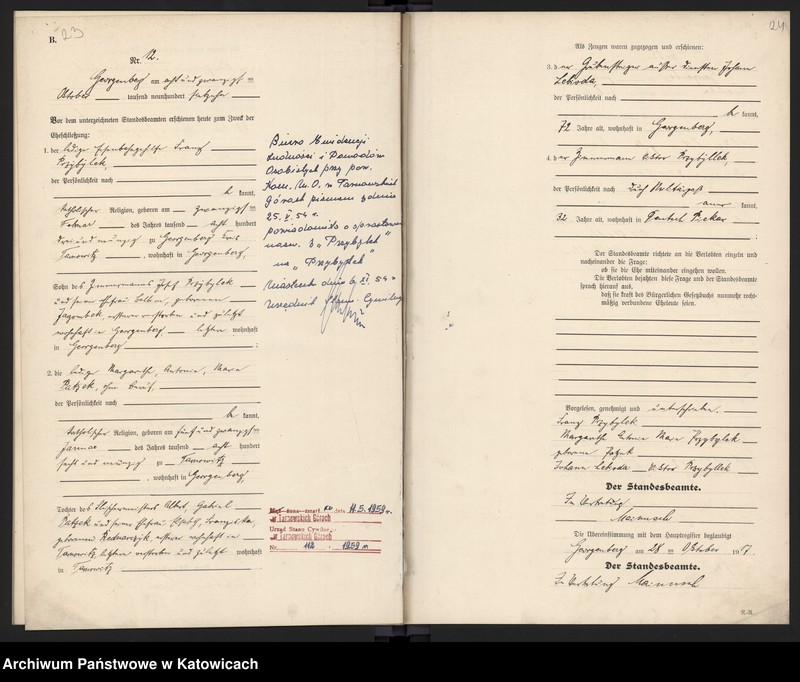 B. 23
Nr. 12.
Georgenberg am acht und zwanzigsten
Oktober tausend neunhundert siebzehn
Vor dem unterzeichneten Standesbeamten erschienen heute zum Zweck der
Eheschließung:
1. der ledige Franz
Przybylek,
der Persönlichkeit nach
be kannt,
katholischer Religion, geboren am zwanzigsten
Februar des Jahres tausend acht hundert
drei und neunzig zu Georgenberg Kreis
Tarnowitz, wohnhaft in Georgenberg,
Sohn des Zimmermanns Josef Przybylek
und seiner Ehefrau geborenen
ersterer verstorben und zuletzt
wohnhaft in Georgenberg, letztere wohnhaft
in Georgenberg;
2. die ledige Margarethe, Antonie, Marie
Patzek, ohne Beruf,
der Persönlichkeit nach
be kannt,
katholischer Religion, geboren am fünf und zwanzigsten
Januar des Jahres tausend acht hundert
sechs und neunzig zu Tarnowitz
, wohnhaft in Georgenberg,
Tochter des Fleischermeisters Albert, Gabriel
Patzek und seiner Ehefrau Franziska,
geborenen Bednarczyk, ersterer wohnhaft in
Tarnowitz, letztere verstorben und zuletzt wohnhaft
in Tarnowitz
Biuro Ewidencji
Ludności i Dowodów
Osobistych przy pow.
Kom. M.O. w Tarnowskich
Górach pismem z dnia
25.V.54 r.
powiadomiło o sprostowaniu
nazw. z „Przybylek"
na „Przybyłek"
Miasteczko dnia 6.XI.54 r.
Urzędnik Stanu Cywilnego
data 11.5.1959 r.
w Tarnowskich Górach
Urząd Stanu Cywilnego
w Tarnowskich Górach
Nr. 112 1959 r.
24
Als Zeugen waren zugezogen und erschienen:
3. der außer Diensten Johann
Lekroda,
der Persönlichkeit nach
be kannt,
72 Jahre alt, wohnhaft in Georgenberg,
4. der Zimmermann Viktor Przybyllek,
der Persönlichkeit nach durch Militärpaß
aner kannt,
32 Jahre alt, wohnhaft in Deutsch Piekar
Der Standesbeamte richtete an die Verlobten einzeln und
nacheinander die Frage:
ob sie die Ehe miteinander eingehen wollen.
Die Verlobten bejahten diese Frage und der Standesbeamte
sprach hierauf aus,
daß sie kraft des Bürgerlichen Gesetzbuchs nunmehr recht-
mäßig verbundene Eheleute seien.
Vorgelesen, genehmigt und unterschrieben.
Franz Przybylek
Margarethe Antonie Marie Przybylek
geborene Patzek
Johann Lekroda Viktor Przybyllek
Der Standesbeamte.
In Vertretung
Die Übereinstimmung mit dem Hauptregister beglaubigt
Georgenberg am 28 ten Oktober 1917
Der Standesbeamte.
In Vertretung
Archiwum Państwowe w Katowicach